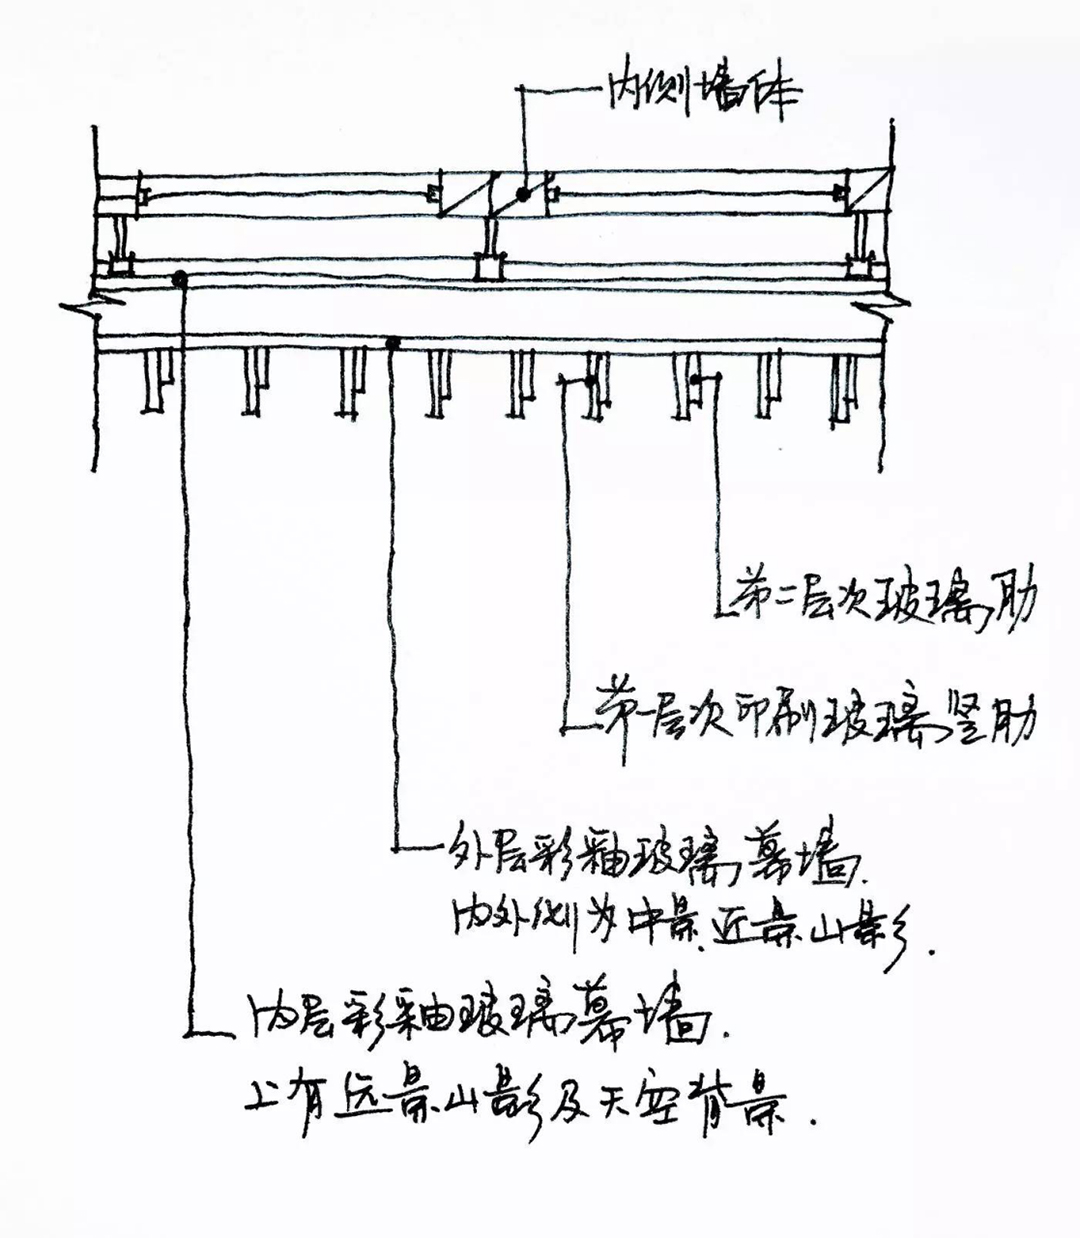 内侧墙体
第二层次玻璃肋
第一层次印刷玻璃竖肋
外层彩釉玻璃幕墙.
内外侧为中景、近景山影.
内层彩釉玻璃幕墙.
上有远景山影及天空背景.